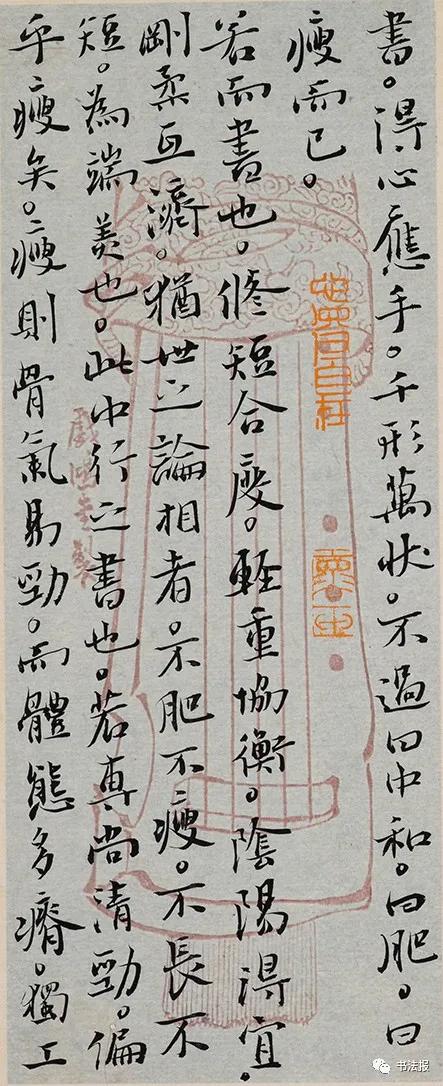 書。得心應手。千形萬狀。不過曰中和。曰肥。曰
瘦而已。
若而書也。脩短合度。輕重協衡。陰陽得宜。
剛柔互濟。猶世之論相者。不肥不瘦。不長不
短。為端美也。此中行之書也。若專尚清勁。偏
乎瘦矣。瘦則骨氣易勁。而體態多瘠。獨工
书法报